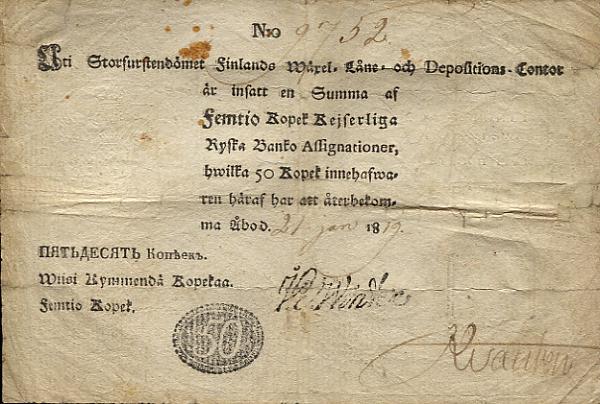 N:o 9752
Uti Storfurstendömet Finlands Wäxel- Låne- och Depositions-Contor
är insatt en Summa af
Femtio Kopek Kejserliga
Ryska Banko Assignationer,
hwilka 50 Kopek innehafwa-
ren häraf har att återbekom-
ma Åbo d. 21 jan 1819.
ПЯТЬДЕСЯТЬ Копѣекъ.
Wiisi Kymmendä Kopekaa.
Femtio Kopek.
50